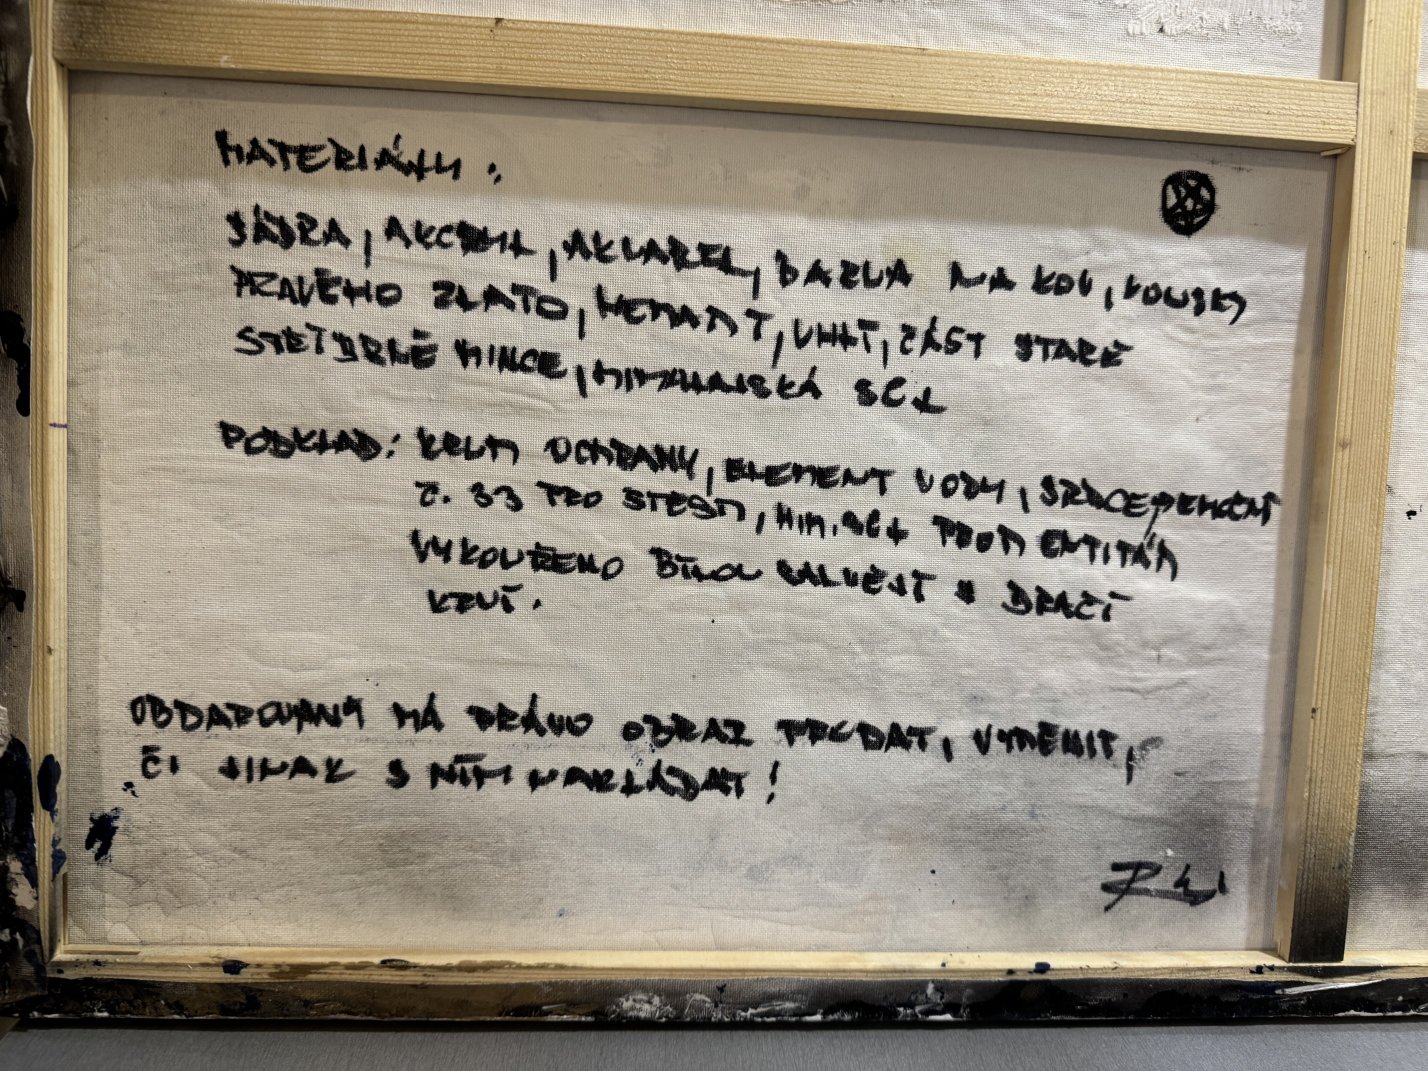 MATERIÁLY:
SÁDRA, AKRYL, AKVAREL, BARVA NA KOV, KOUSKY
PRAVÉHO ZLATO, HEMATIT, UHLÍ, ČÁST STARÉ
STŘÍBRNÉ MINCE, HIMALAJSKÁ SŮL
PODKLAD: KRUH OCHRANY, ELEMENT VODY,
Č. 33 PRO ŠTĚSTÍ, HIM. SŮL PROTI ENTITÁM
VYKOUŘENO BÍLOU ŠALVĚJÍ A DRAČÍ
KRVÍ.
OBDAROVANÝ MÁ PRÁVO OBRAZ PRODAT, VYMĚNIT,
ČI JINAK S NÍM NAKLÁDAT!